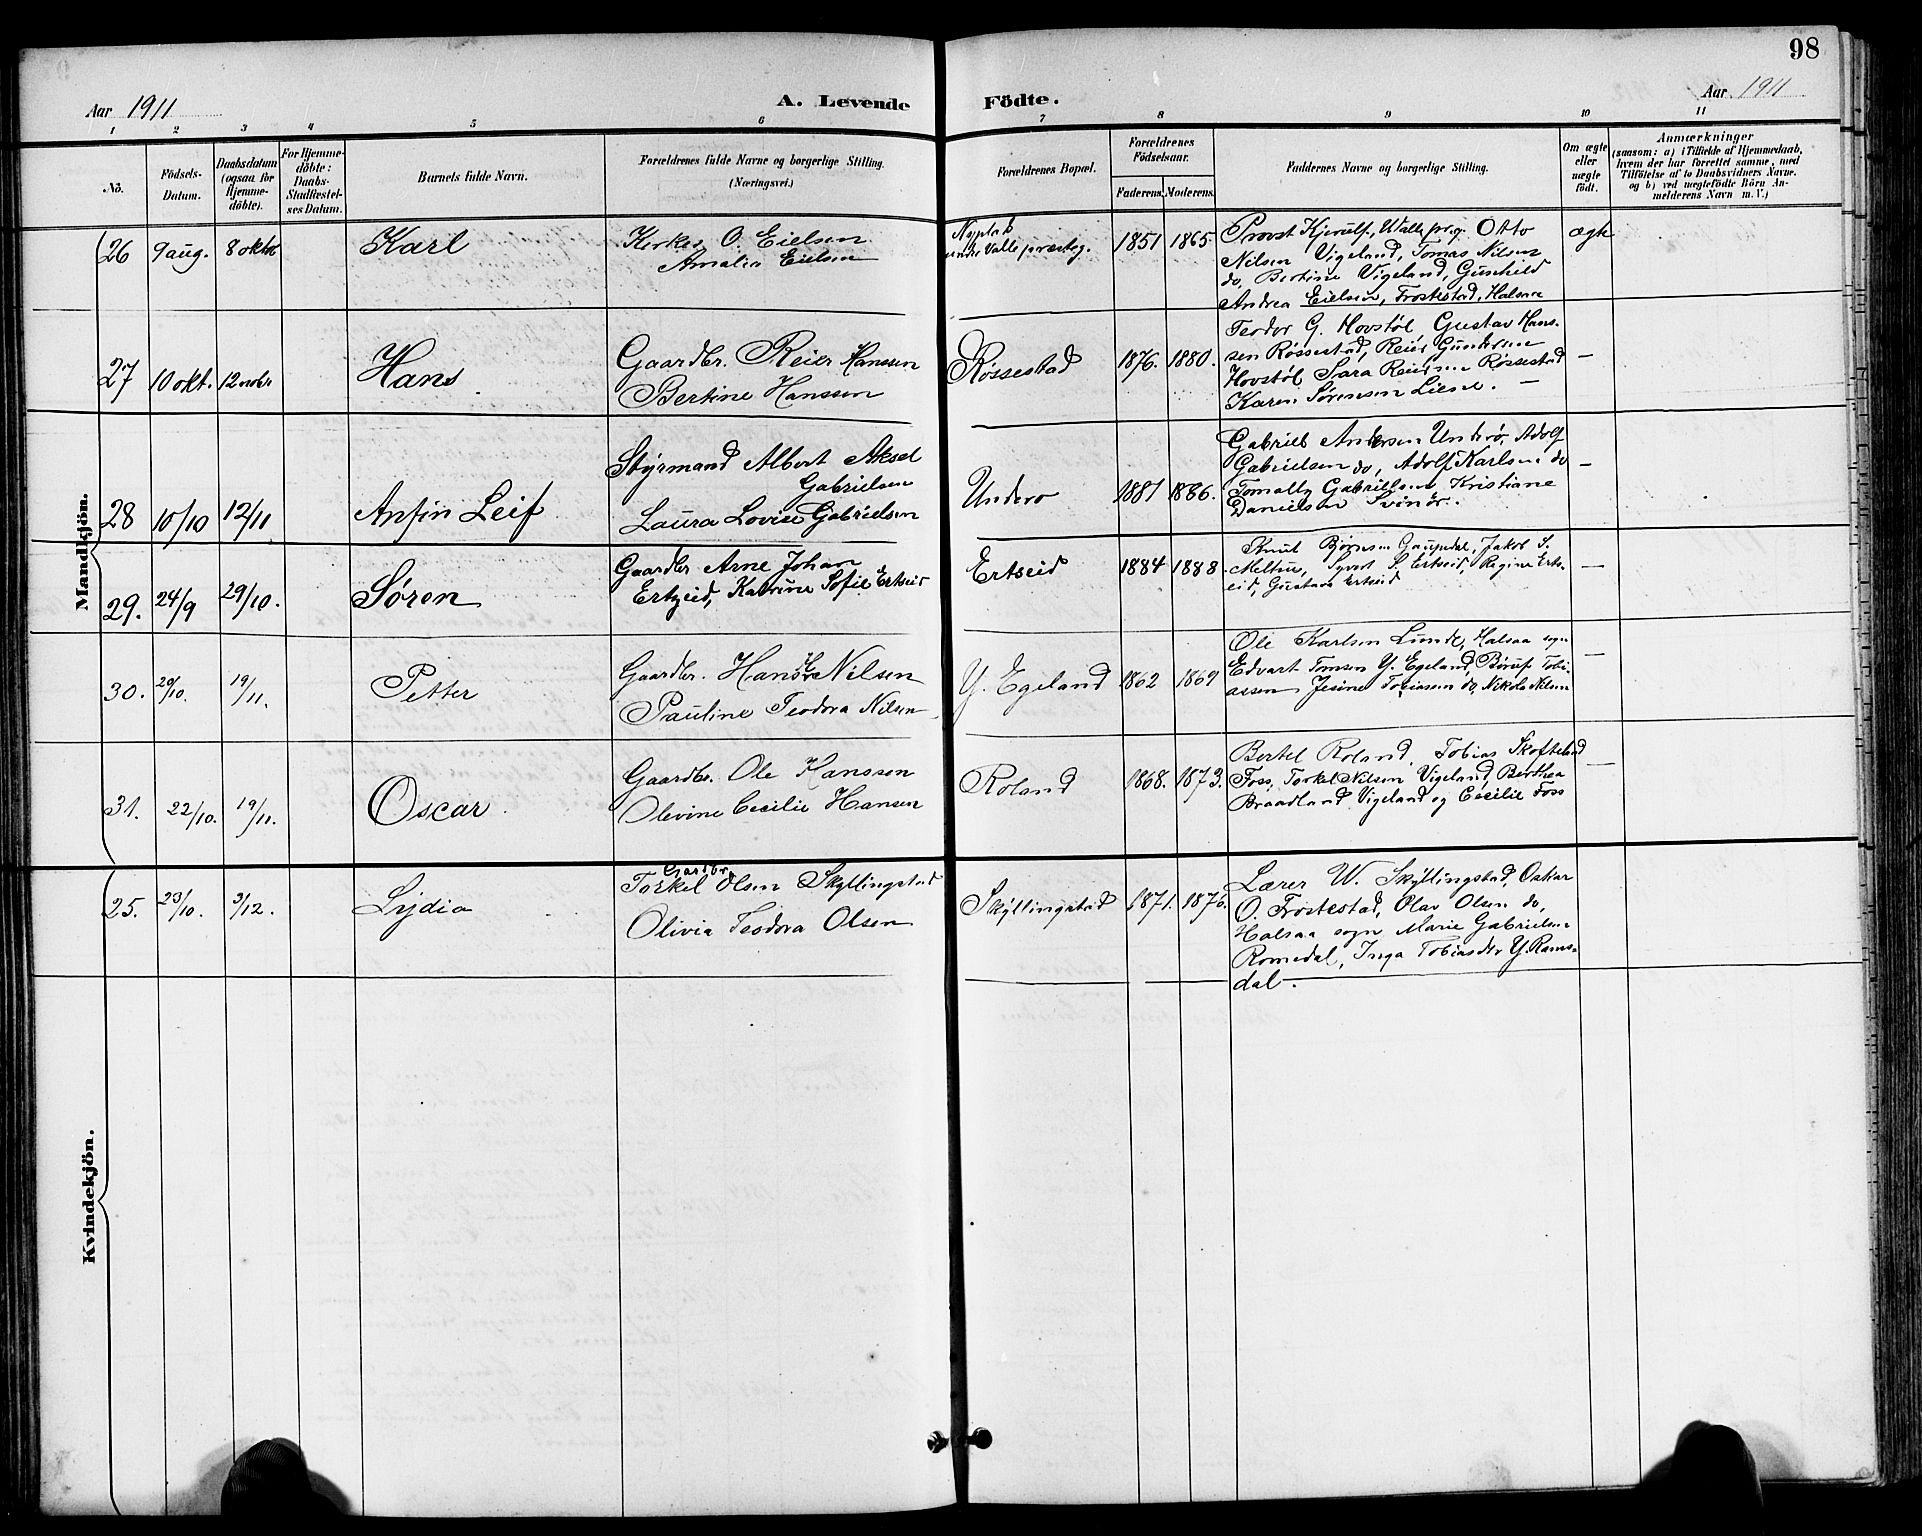 98
Aar 1911
A. Levende Födte.
Aar 1911
1 2 3 4 5 6 7 8 9 10 11
No.
Födsels-Datum.
Daabsdatum (ogsaa for Hjemme-döbte).
For Hjemme-döbte: Daabs-Stadfæstel-ses Datum.
Barnets fulde Navn.
Forældrenes fulde Navne og borgerlige Stilling. (Næringsvei.)
Forældrenes Bopæl.
Forældrenes Födselsaar.
Faderens. Moderens.
Faddernes Navne og borgerlige Stilling.
Om ægte eller uægte födt.
Anmærkninger
(saasom: a) i Tilfælde af Hjemmedaab,
hvem der har forrettet samme, med
Tilföielse af to Daabsvidners Navne.
og b) ved uægtefödte Börn An-
melderens Navn m. V.)
Mandkjön.
26 9 aug. 8 oktb Karl
O. Eielsen
Amalia Eielsen
Valle præsteg.
1851 1865.
Provst Kjerulf, Valle pr.g. Otto
Nilsen Vigeland, Tomas Nilsen
do, Bertine Vigeland, Gunhild
Andrea Eielsen, Frostestad, Halsaa
ægte
27 10 okt. 12 novbr Hans
Gaardbr. Reier Hanssen
Bertine Hanssen
Røssestad
1876. 1880.
Teodor G. Hovstøl, Gustav Hans-
sen Røssestad, Reier Gundersen
Hovstøl Sara Reiersen Røssestad
Karen Sørensen Liene. —
—
28 10/10 12/11 Anfin Leif
Styrmand Albert Aksel
Gabrielsen
Laura Lovise Gabrielsen
Underø
1881 1886.
Gabriel Andersen Underø, Adolf
Gabrielsen do, Adolf Karlsen do
Gabrielsen Kristiane
Danielsen Svinør.
—
29. 24/9 29/10. Søren
Gaardbr Arne Johan
Ertzeid, Katrine Sofie Ertseid
Ertseid
1884 1888
Knut Bjørnsen Gaupdal, Jakob S.
Syvert S. Ertseid, Regine Erts-
eid, Gustava Ertseid
—
30. 20/10. 19/11. Petter
Gaardbr. Hans Nilsen
Pauline Teodora Nilsen
Y. Egeland
1862 1869
Ole Karlsen Lunde, Halsaa sogn
Edvart Tomsen Y. Egeland, Tobi-
assen Jesine Tobiasen do, Nikolai Nilsen
—
31. 22/10. 19/11. Oscar
Gaardbr. Ole Hanssen
Olevine Cecilie Hansen
Roland
1868. 1873.
Bertel Roland, Tobias Skofteland
Foss, Torkel Nilsen Vigeland, Berthea
Braadland, Vigeland og Cecilie Foss
—
Kvindekjön.
25. 23/10. 3/12. Lydia
Gaardbr.
Torkel Olsen Skyllingstad
Olivia Teodora Olsen
Skyllingstad
1871. 1876.
Lærer W. Skyllingstad, Oskar
O. Frostestad, Olav Olsen do,
Halsaa sogn Marie Gabrielsen
Romedal, Inga Tobiasdtr Y. Rams-
dal.